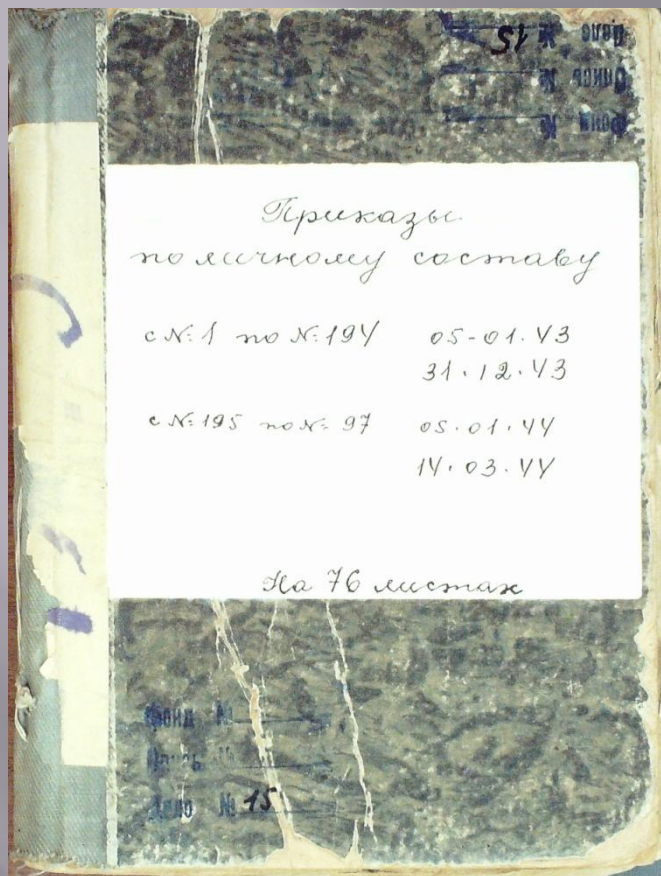 Дело № 15
Опись №
Фонд №
Приказы
по личному составу
с №:1 по №:194 05-01.43
31.12.43
с №:195 по №: 97 05.01.44
14.03.44
На 76 листах
Фонд №
Опись №
Дело № 15